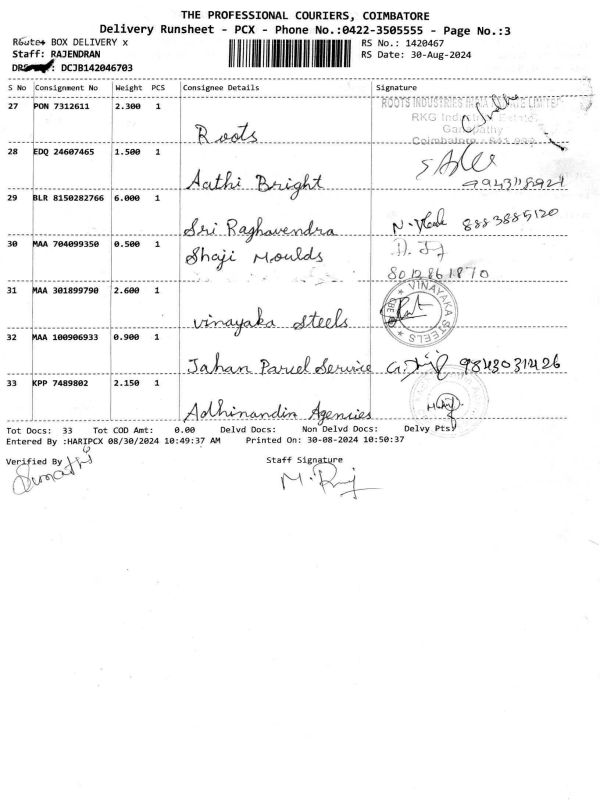 THE PROFESSIONAL COURIERS, COIMBATORE
Delivery Runsheet - PCX - Phone No.:0422-3505555 - Page No.:3
Route: BOX DELIVERY x
RS No.: 1420467
Staff: RAJENDRAN
RS Date: 30-Aug-2024
: DCJB142046703
S No Consignment No Weight PCS Consignee Details Signature
27 PON 7312611 2.300 1 Roots
ROOTS INDUSTRIES INDIA PRIVATE LIMITED
RKG Industrial Estate,
Ganapathy
Coimbatore - 641 006
28 EDQ 24607465 1.500 1 Aathi Bright
29 BLR 8150282766 6.000 1 Sri Raghavendra 8883885120
30 MAA 704099350 0.500 1 Shaji Moulds
8012861870
31 MAA 301899790 2.600 1 Vinayaka Steels
VINAYAKA STEELS
32 MAA 100906933 0.900 1 Jahan Parcel Service 9843031426
33 KPP 7489802 2.150 1 Adhinandin Agencies
Tot Docs: 33 Tot COD Amt: 0.00 Delvd Docs: Non Delvd Docs: Delvy Pts
Entered By :HARIPCX 08/30/2024 10:49:37 AM Printed On: 30-08-2024 10:50:37
Verified By
Staff Signature